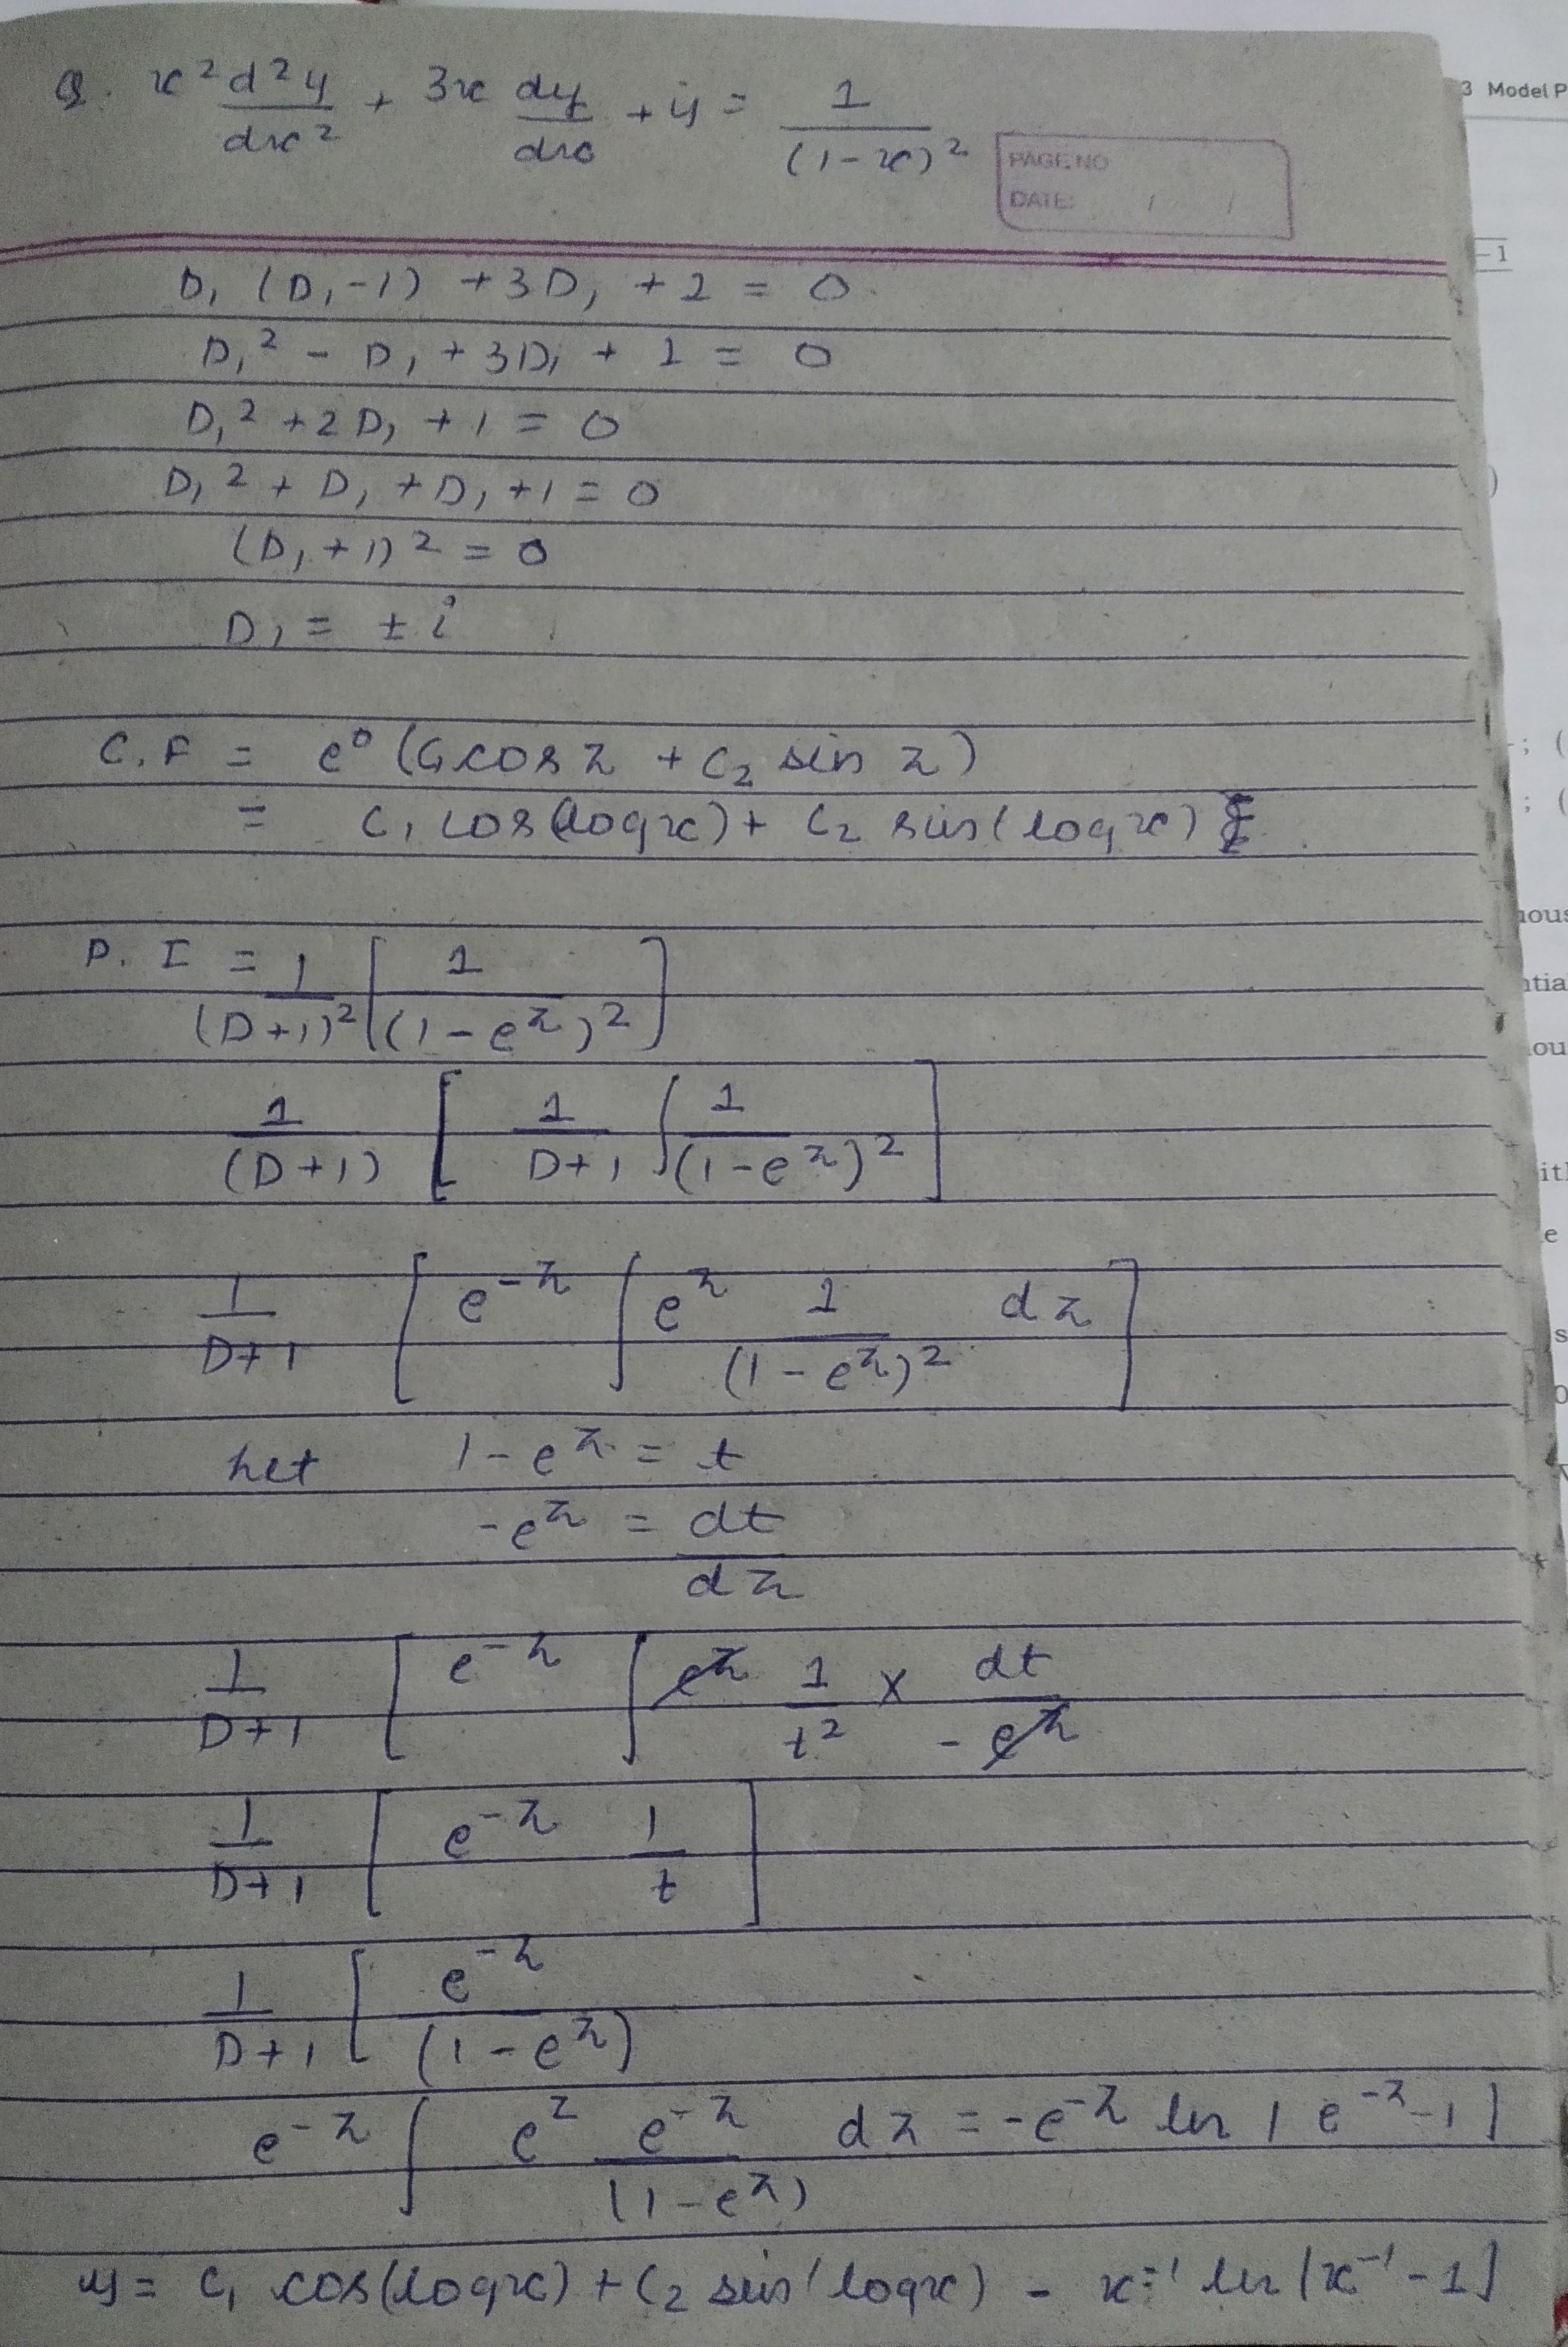 Q. x² d²y/dx² + 3x dy/dx + y = 1/(1-x)²
PAGE NO
DATE: / /
D₁ (D₁-1) + 3D₁ + 1 = 0
D₁² - D₁ + 3D₁ + 1 = 0
D₁² + 2D₁ + 1 = 0
D₁² + D₁ + D₁ + 1 = 0
(D₁ + 1)² = 0
D₁ = ± i
C.F = e⁰ (C₁ cos z + C₂ sin z)
= C₁ cos(log x) + C₂ sin(log x)
P.I = 1/(D+1)² [ 1/(1-e^z)² ]
1/(D+1) [ 1/D+1 ∫ 1/(1-e^z)² ]
1/D+1 [ e^-z ∫ e^z 1/(1-e^z)² dz ]
Let 1-e^z = t
-e^z = dt/dz
1/D+1 [ e^-z ∫ e^z 1/t² × dt/-e^z
1/D+1 [ e^-z 1/t ]
1/D+1 [ e^-z/(1-e^z)
e^-z ∫ e^z e^-z/(1-e^z) dz = -e^-z ln | e^-z - 1 |
y = C₁ cos(log x) + C₂ sin(log x) - x^-1 ln |x^-1 - 1|
3 Model P
-1
)
; (
; (
nous
ntia
ou
it
e
s